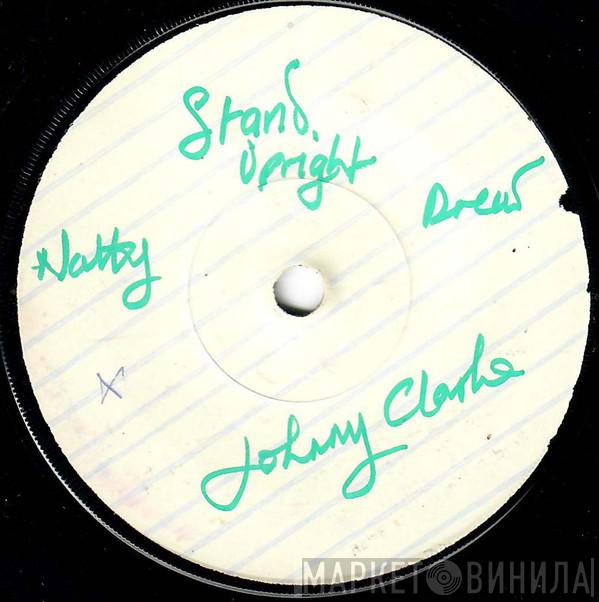 Stand.
Upright
Natty
Dread
Johnny Clarke
X
МАРКЕТ ВИНИЛА